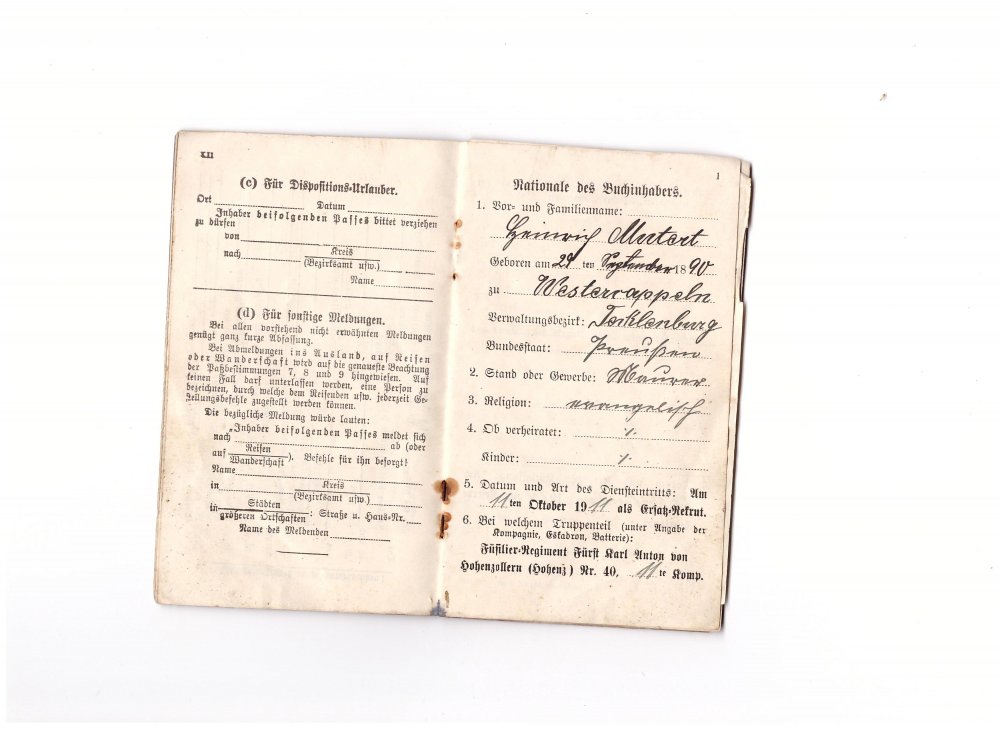 XII
(c) Für Dispositions-Urlauber.
Ort Datum
Inhaber beifolgenden Passes bittet verziehen
zu dürfen
von
nach Kreis
(Bezirksamt usw.)
Name
(d) Für sonstige Meldungen.
Bei allen vorstehend nicht erwähnten Meldungen
genügt ganz kurze Abfassung.
Bei Abmeldungen ins Ausland, auf Reisen
oder Wanderschaft wird auf die genaueste Beachtung
der Paßbestimmungen 7, 8 und 9 hingewiesen. Auf
keinen Fall darf unterlassen werden, eine Person zu
bezeichnen, durch welche dem Reisenden usw. jederzeit Ge-
stellungsbefehle zugestellt werden können.
Die bezügliche Meldung würde lauten:
„Inhaber beifolgenden Passes meldet sich
nach ab (oder
auf Reisen
Wanderschaft). Befehle für ihn besorgt!
Name
in Kreis
(Bezirksamt usw.)
in Städten
größeren Ortschaften: Straße u. Haus-Nr.
Name des Meldenden
1
Nationale des Buchinhabers.
1. Vor- und Familienname:
Heinrich Mutert
Geboren am 29 ten September 1890
zu Westercappeln
Verwaltungsbezirk: Tecklenburg
Bundesstaat: Preußen
2. Stand oder Gewerbe: Maurer
3. Religion: evangelisch
4. Ob verheiratet: ./.
Kinder: ./.
5. Datum und Art des Diensteintritts: Am
11ten Oktober 1911 als Ersatz-Rekrut.
6. Bei welchem Truppenteil (unter Angabe der
Kompagnie, Eskadron, Batterie):
Füsilier-Regiment Fürst Karl Anton von
Hohenzollern (Hohenz) Nr. 40, 11te Komp.